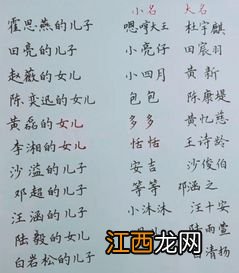 小名 大名
霍思燕的儿子 嗯哼大王 杜宇麒
田亮的儿子 小亮仔 田宸羽
赵薇的女儿 小四月 黄新
陈奕迅的女儿 包包 陈康堤
黄磊的女儿 多多 黄忆慈
李湘的女儿 恬恬 王诗龄
沙溢的儿子 安吉 沙俊伯
邓超的儿子 等等 邓涵之
汪涵的儿子 小沐沐 汪十安
陆毅的女儿 陆雨萱
白岩松的儿子 清扬
江西龙网